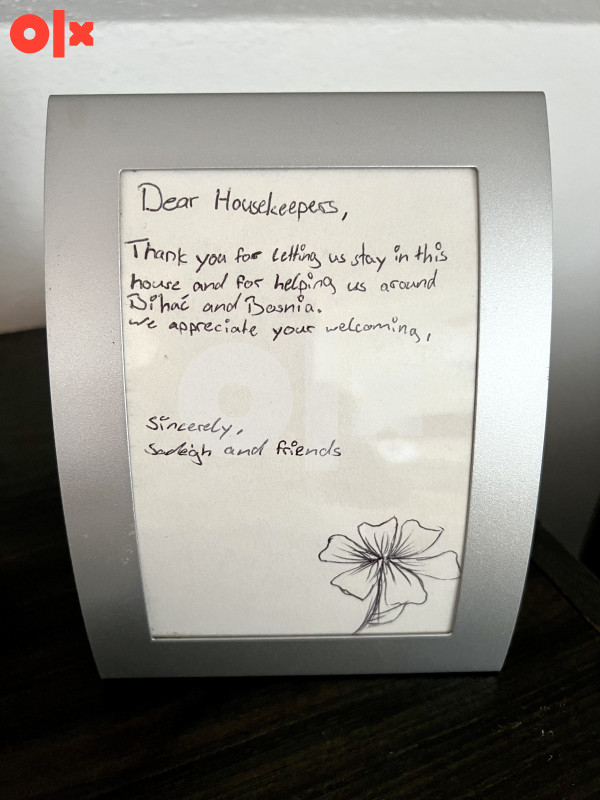 olx
Dear Housekeepers,
Thank you for letting us stay in this
house and for helping us around
Bihać and Bosnia.
We appreciate your welcoming,
olx
Sincerely,
and friends